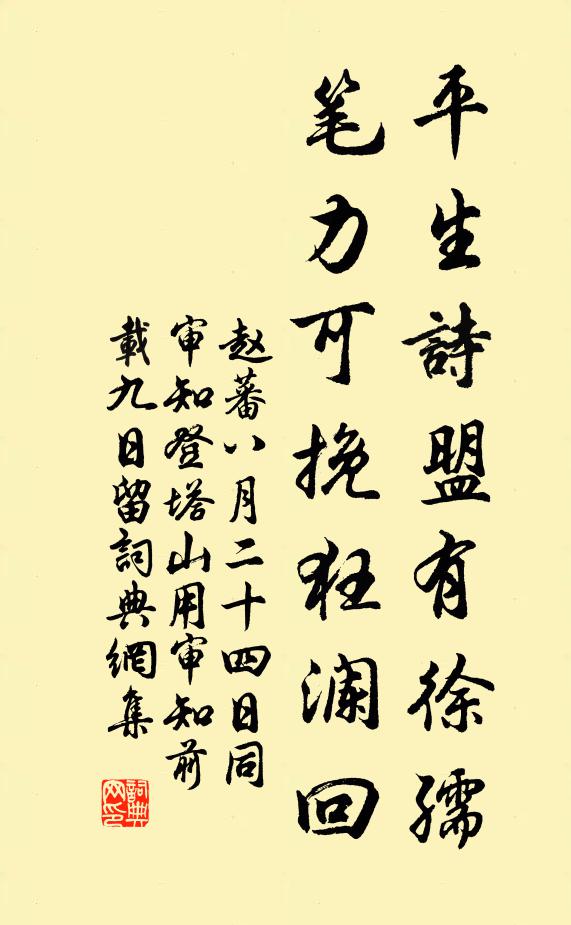 平生詩盟有徐孺
笔力可挽狂澜回
赵蕃八月二十四日同
审知登塔山用审知前
載九日留詞典網集
詞典
网印